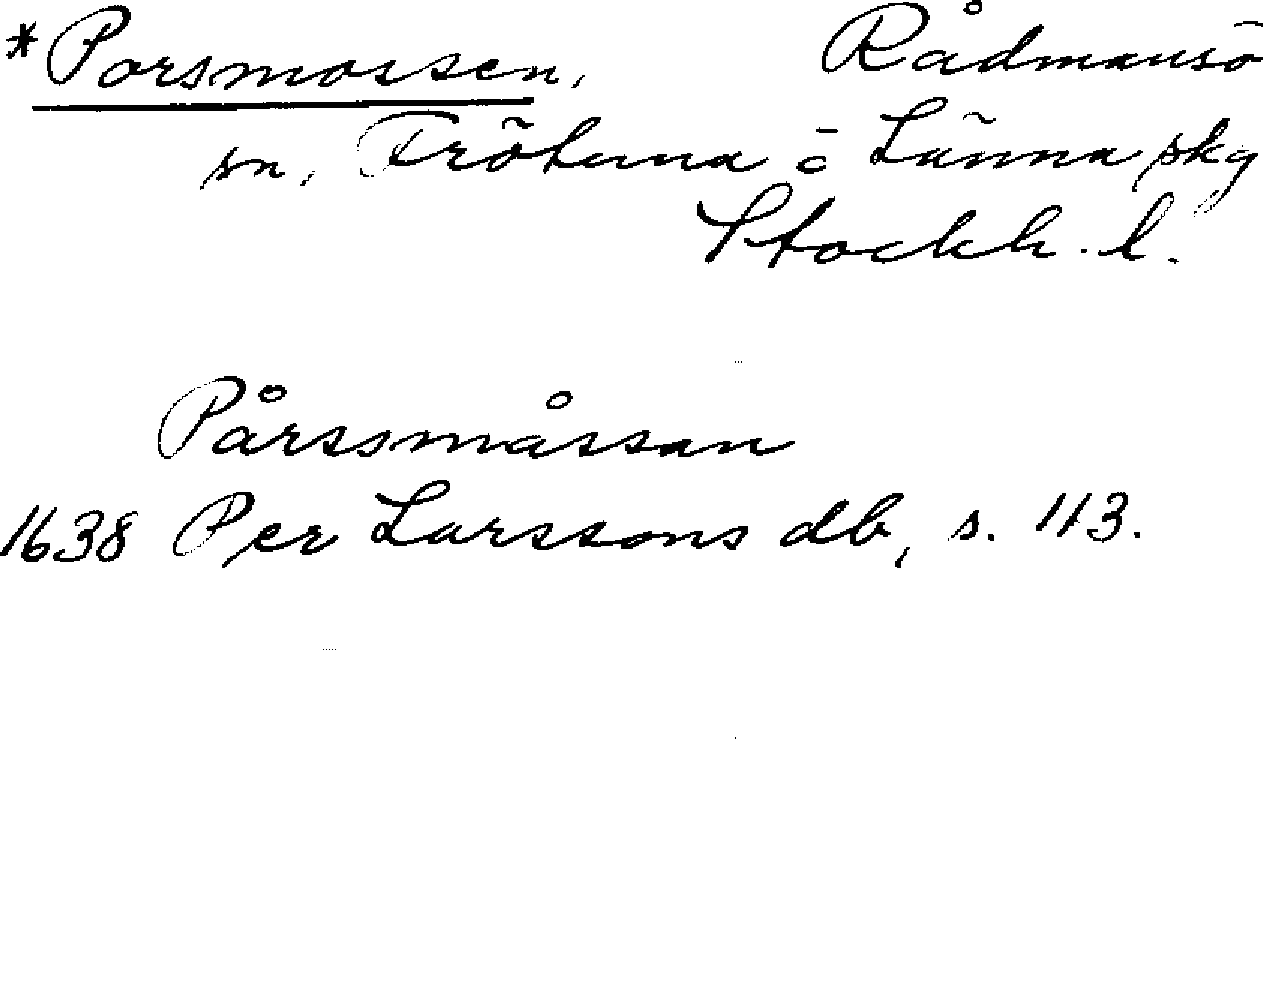 *Porsmossen, Rådmansö
sn, Frötuna o Länna skg
Stockh. l.
Pårssmåssan
1638 Per Larssons db, s. 113.